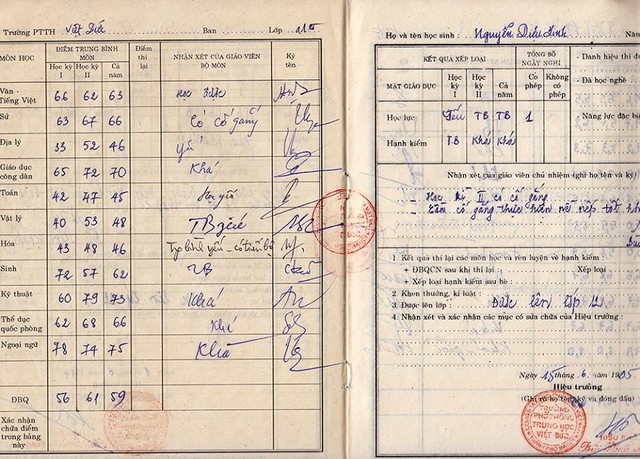 Trường PTTH Việt Đức Ban Lớp 11
MÔN HỌC
ĐIỂM TRUNG BÌNH MÔN
Học kỳ I
Học kỳ II
Cả năm
Điểm thi lại
NHẬN XÉT CỦA GIÁO VIÊN BỘ MÔN
Ký tên
Văn - Tiếng Việt 66 62 63 Học được
Sử 63 67 66 Có cố gắng
Địa lý 33 52 46 yếu
Giáo dục công dân 65 72 70 Khá
Toán 42 47 45 yếu
Vật lý 40 53 48 TB
Hóa 43 48 46 yếu - có tiến bộ
Sinh 72 57 62 TB
Kỹ thuật 60 79 73 Khá
Thể dục quốc phòng 62 68 66 Khá
Ngoại ngữ 78 74 75 Khá
ĐBQ 56 61 59
Xác nhận chữa điểm trong bảng này
Họ và tên học sinh : Nguyễn Diệu Linh
KẾT QUẢ XẾP LOẠI
TỔNG SỐ NGÀY NGHỈ
MẶT GIÁO DỤC
Học kỳ I
Học kỳ II
Cả năm
Có phép
Không có phép
Học lực Yếu TB TB 1
Hạnh kiểm TB Khá Khá
- Danh hiệu thi
- Đã học nghề
- Năng lực đặc
Nhận xét của giáo viên chủ nhiệm (ghi họ tên và ký)
- Học kỳ II có cố gắng
- Cần cố gắng thực hiện nề nếp tốt
1. Kết quả thi lại các môn học và rèn luyện về hạnh kiểm :
+ ĐBQCN sau khi thi lại : Xếp loại
+ Xếp loại hạnh kiểm sau hè :
2. Khen thưởng, kỉ luật :
3. Được lên lớp : Được lên lớp 12
4. Nhận xét và xác nhận các mục có sửa chữa của Hiệu trưởng :
Ngày 15 tháng 6 năm 1995
Hiệu trưởng
(Ghi rõ họ tên, ký và đóng dấu)
TRƯỜNG
PHỔ THÔNG
TRUNG HỌC
VIỆT ĐỨC